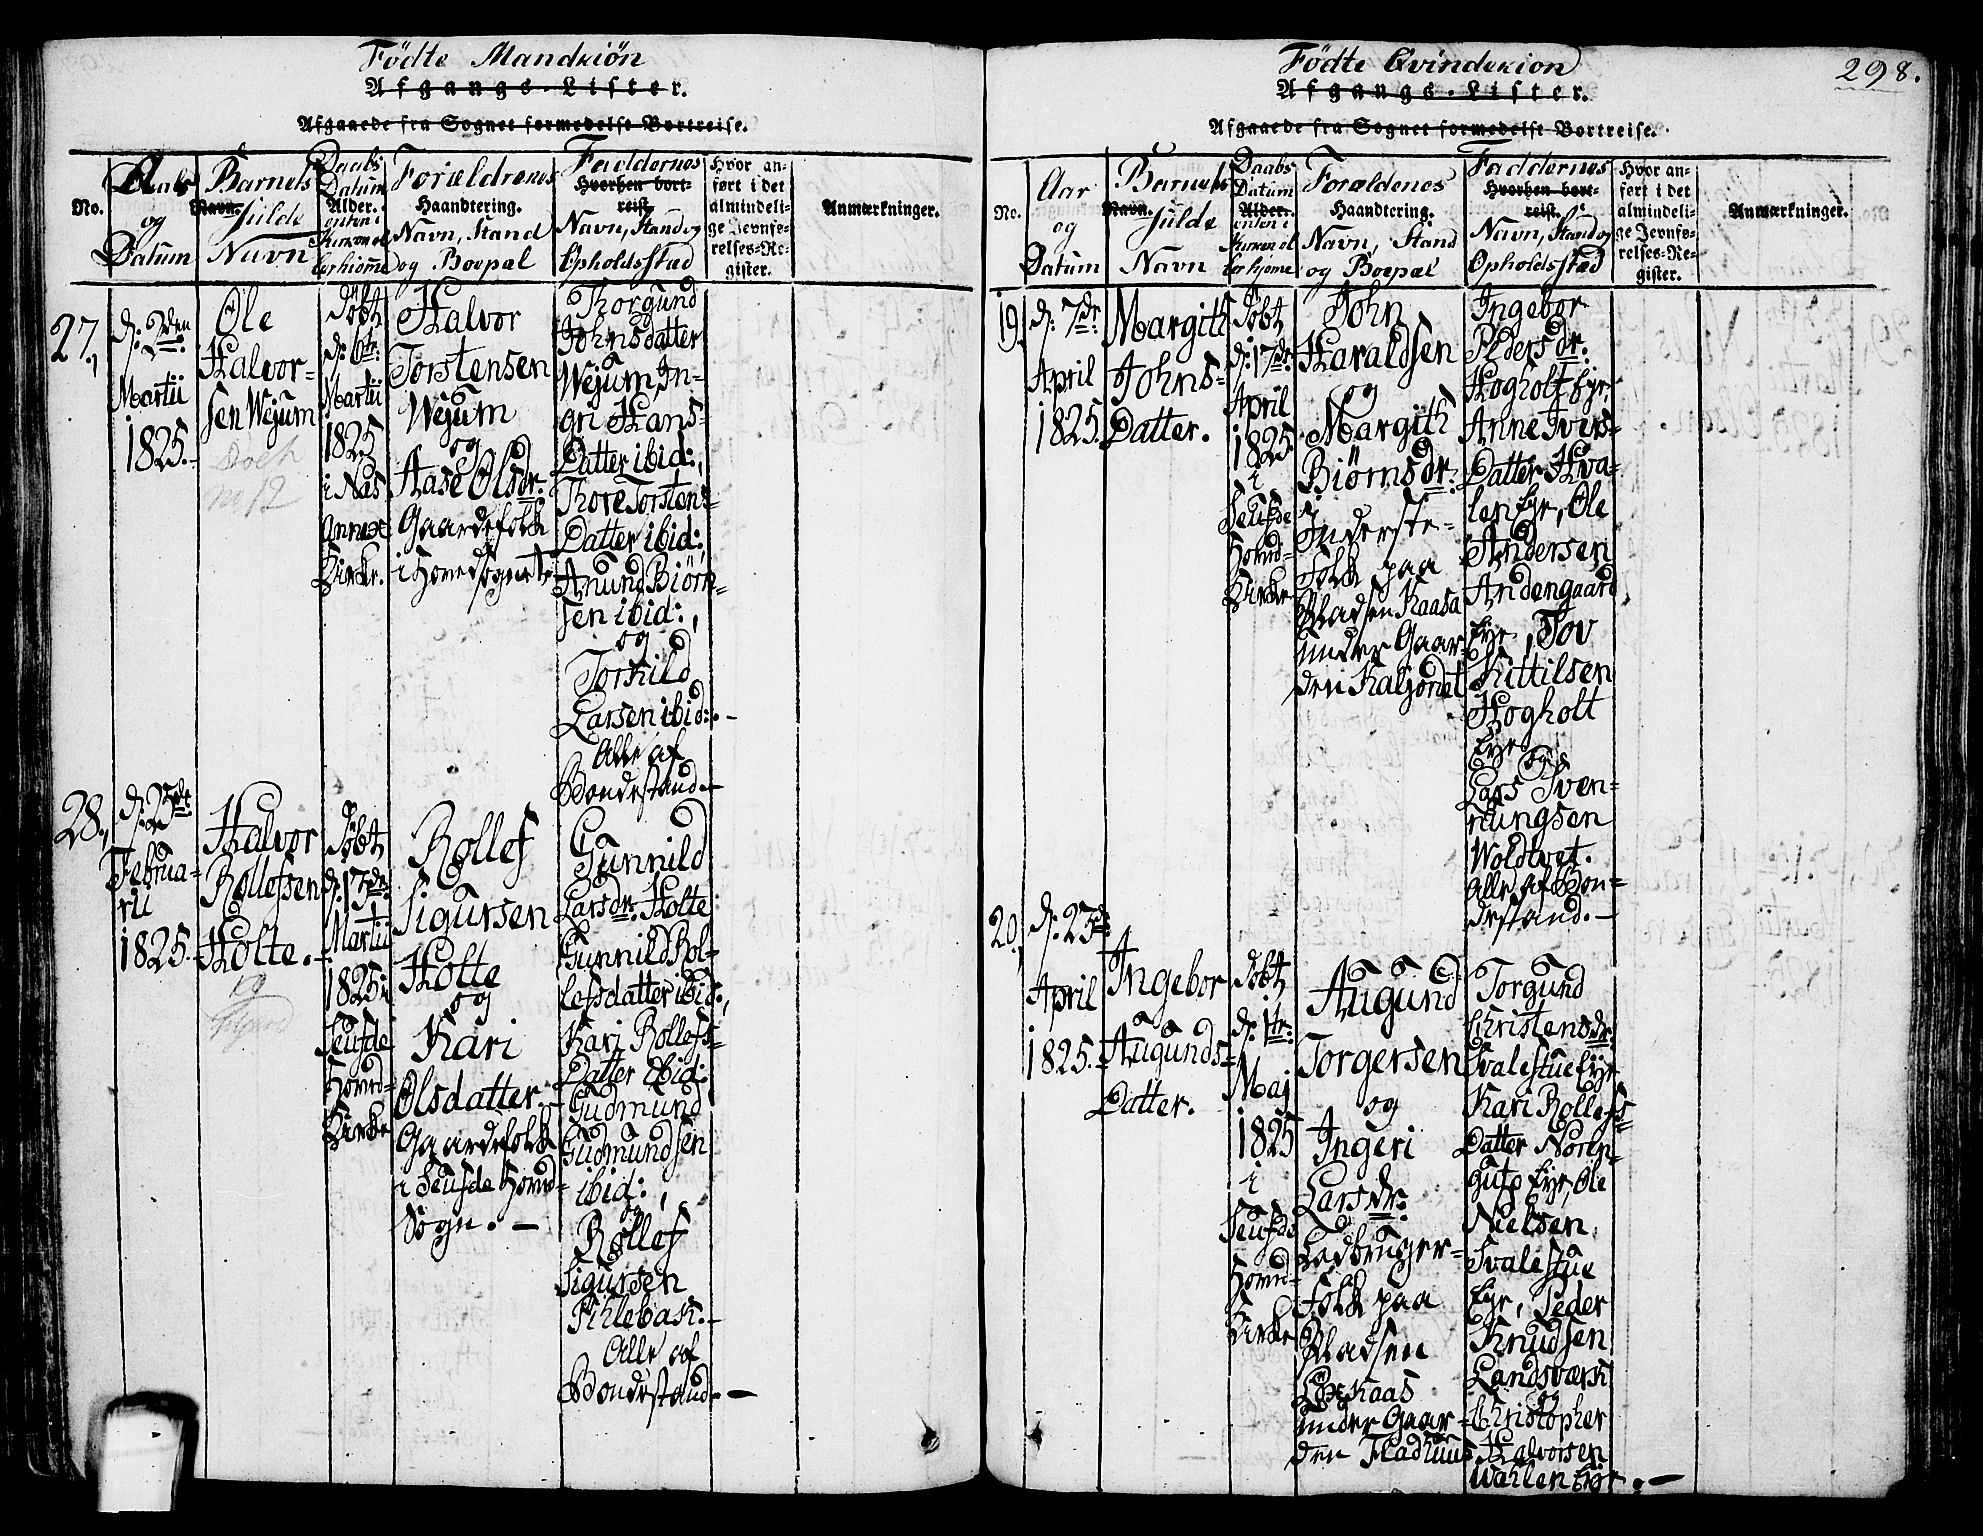 Födte Mandkiön
Afgangs-Lister.
Afgaaede fra Sognet formedelst Bortreise.
No.
Aar
og
Datum
Barnets
Navn.
fulde
Navn
Daabs
Datum
Alder.
enten i
Kirken el
er hiemme
Forældrenes
Haandtering.
Navn, Stand
og Boepæl
Faddernes
Hvorhen bort-
reist.
Navn, Stand og
Opholdsstæd
Hvor an-
ført i det
almindeli-
ge Jevnfø-
relses-Re-
gister.
Anmærkninger.
27.,
d: 2den
Martii
1825.
Ole
Halvor-
sen Wejum
Døbt
d: 6te:
Martii
1825
i Nas
Annex
Kirke.
Halvor
Torstensen
Wejum
og
Aase Olsdr:
Gaardefolk
i Hovedsognet
Thorgund
Johnsdatter
Wejum, In-
gri Hans-
Datter ibid:,
Thore Torstens-
Datter ibid:,
Anund Biørn-
sen ibid:,
og
Torkild
Larsen ibid:.-
Alle af
Bondestand.-
28.,
Februa-
rii
1825.
Halvor
Rollefsen
Holte.-
Døbt
d: 17de:
Martii
1825 i
Seufde
Hoved-
Kirke
Rollef
Sigursen
Holte
og
Kari
Olsdatter.-
Gaardefolk
i Seufde Hoved-
Sogn.-
Gunnild
Larsdr: Holte
Gunnild Rol-
lefsdatter ibid:,
Kari Rollefs-
Datter ibid:
Gudmund
Gudmundsen
ibid:,
og
Rollef
Sigursen
Kilebak.-
Alle af
Bondestand.-
Födte Qvindekion
298.
Afgangs-Lister.
Afgaaede fra Sognet formedelst Bortreise.
No.
Aar
og
Datum
Barnets
Navn.
fulde
Navn
Daabs
Datum
Alder.
enten i
Kirken el
er hjeme
Forældenes
Haandtering.
Navn, Stand
og Boepæl
Faddernes
Hvorhen bort-
reist.
Navn, Stand og
Opholdsstæd
Hvor an-
ført i det
almindeli-
ge Jevnfø-
relses-Re-
gister.
Anmærkninger.
19.
d: 7de:
April
1825.
Margith
Johns-
Datter.
Døbt
d: 17de
April
1825
i
Seufde
Hoved-
Kirke
John
Haraldsen
og
Margith
Biørnsdr:
Inderste-
Folk paa
Pladsen Kaasa
under Gaar-
den Kaljordet
Ingebor
Pedersdr:
Hogholt Eye,
Anne Ivers-
Datter Hva-
len Eye, Ole
Andersen
Andengaard
Eye, Tov
Kittilsen
Hogholt
Eye
og
Lars Sven-
nungsen
Woldtvet.
Alle af Bon-
destand.-
20.
d: 23de
April
1825.
Ingebor
Augunds-
Datter.
Døbt
d: 1te:
Maj
1825
i
Seufde
Hoved-
Kirke
Augund
Torgersen
og
Ingeri
Larsdr:
Ledbruger-
Folk paa
Pladsen
under Gaar-
den Fladhuus
Torgund
Christensdr:
Svalestue Eye
Kari Rollefs-
Datter Noren-
Eye, Ole
Nielsen
Svalestue
Eye, Peder
Knudsen
Landsværk
og
Christopher
Halvorsen
Wahlen Eye.-